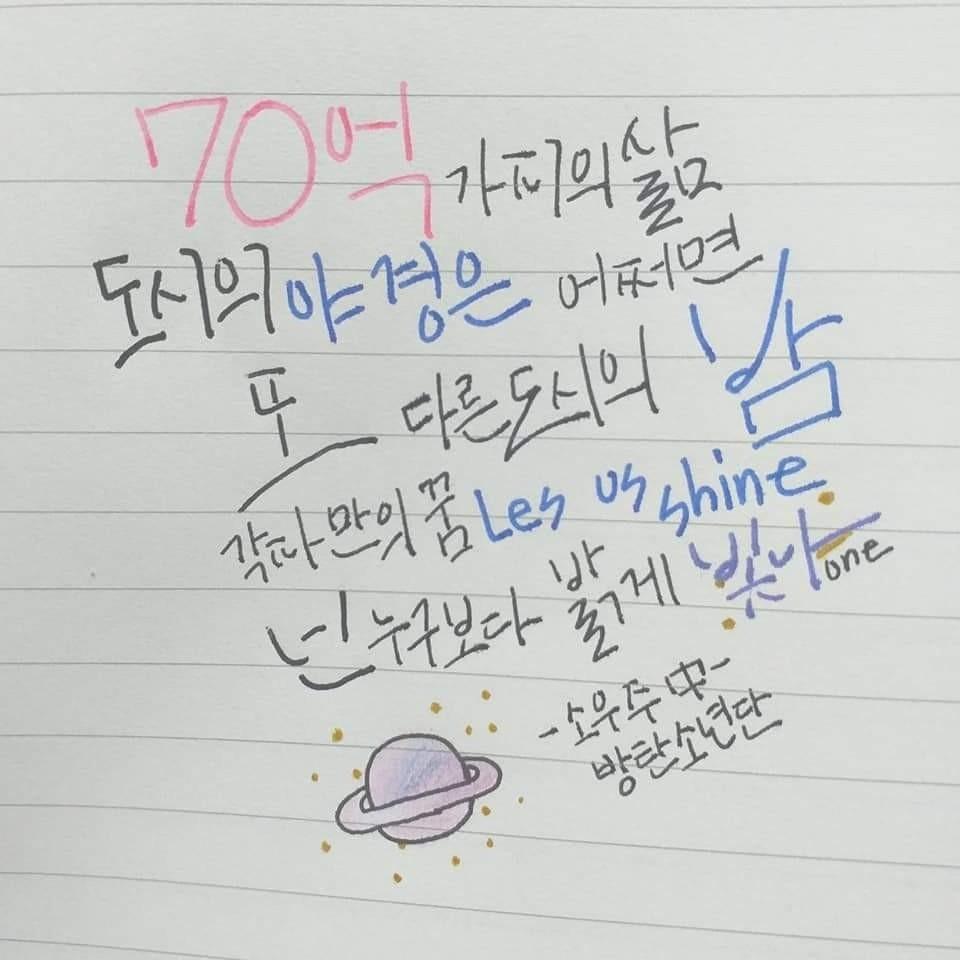 70억 가지의 삶
도시의 야경은 어쩌면
또 다른 도시의 밤
각자만의 꿈 Let us shine
넌 누구보다 밝게 빛나 one
-소우주 中-
방탄소년단